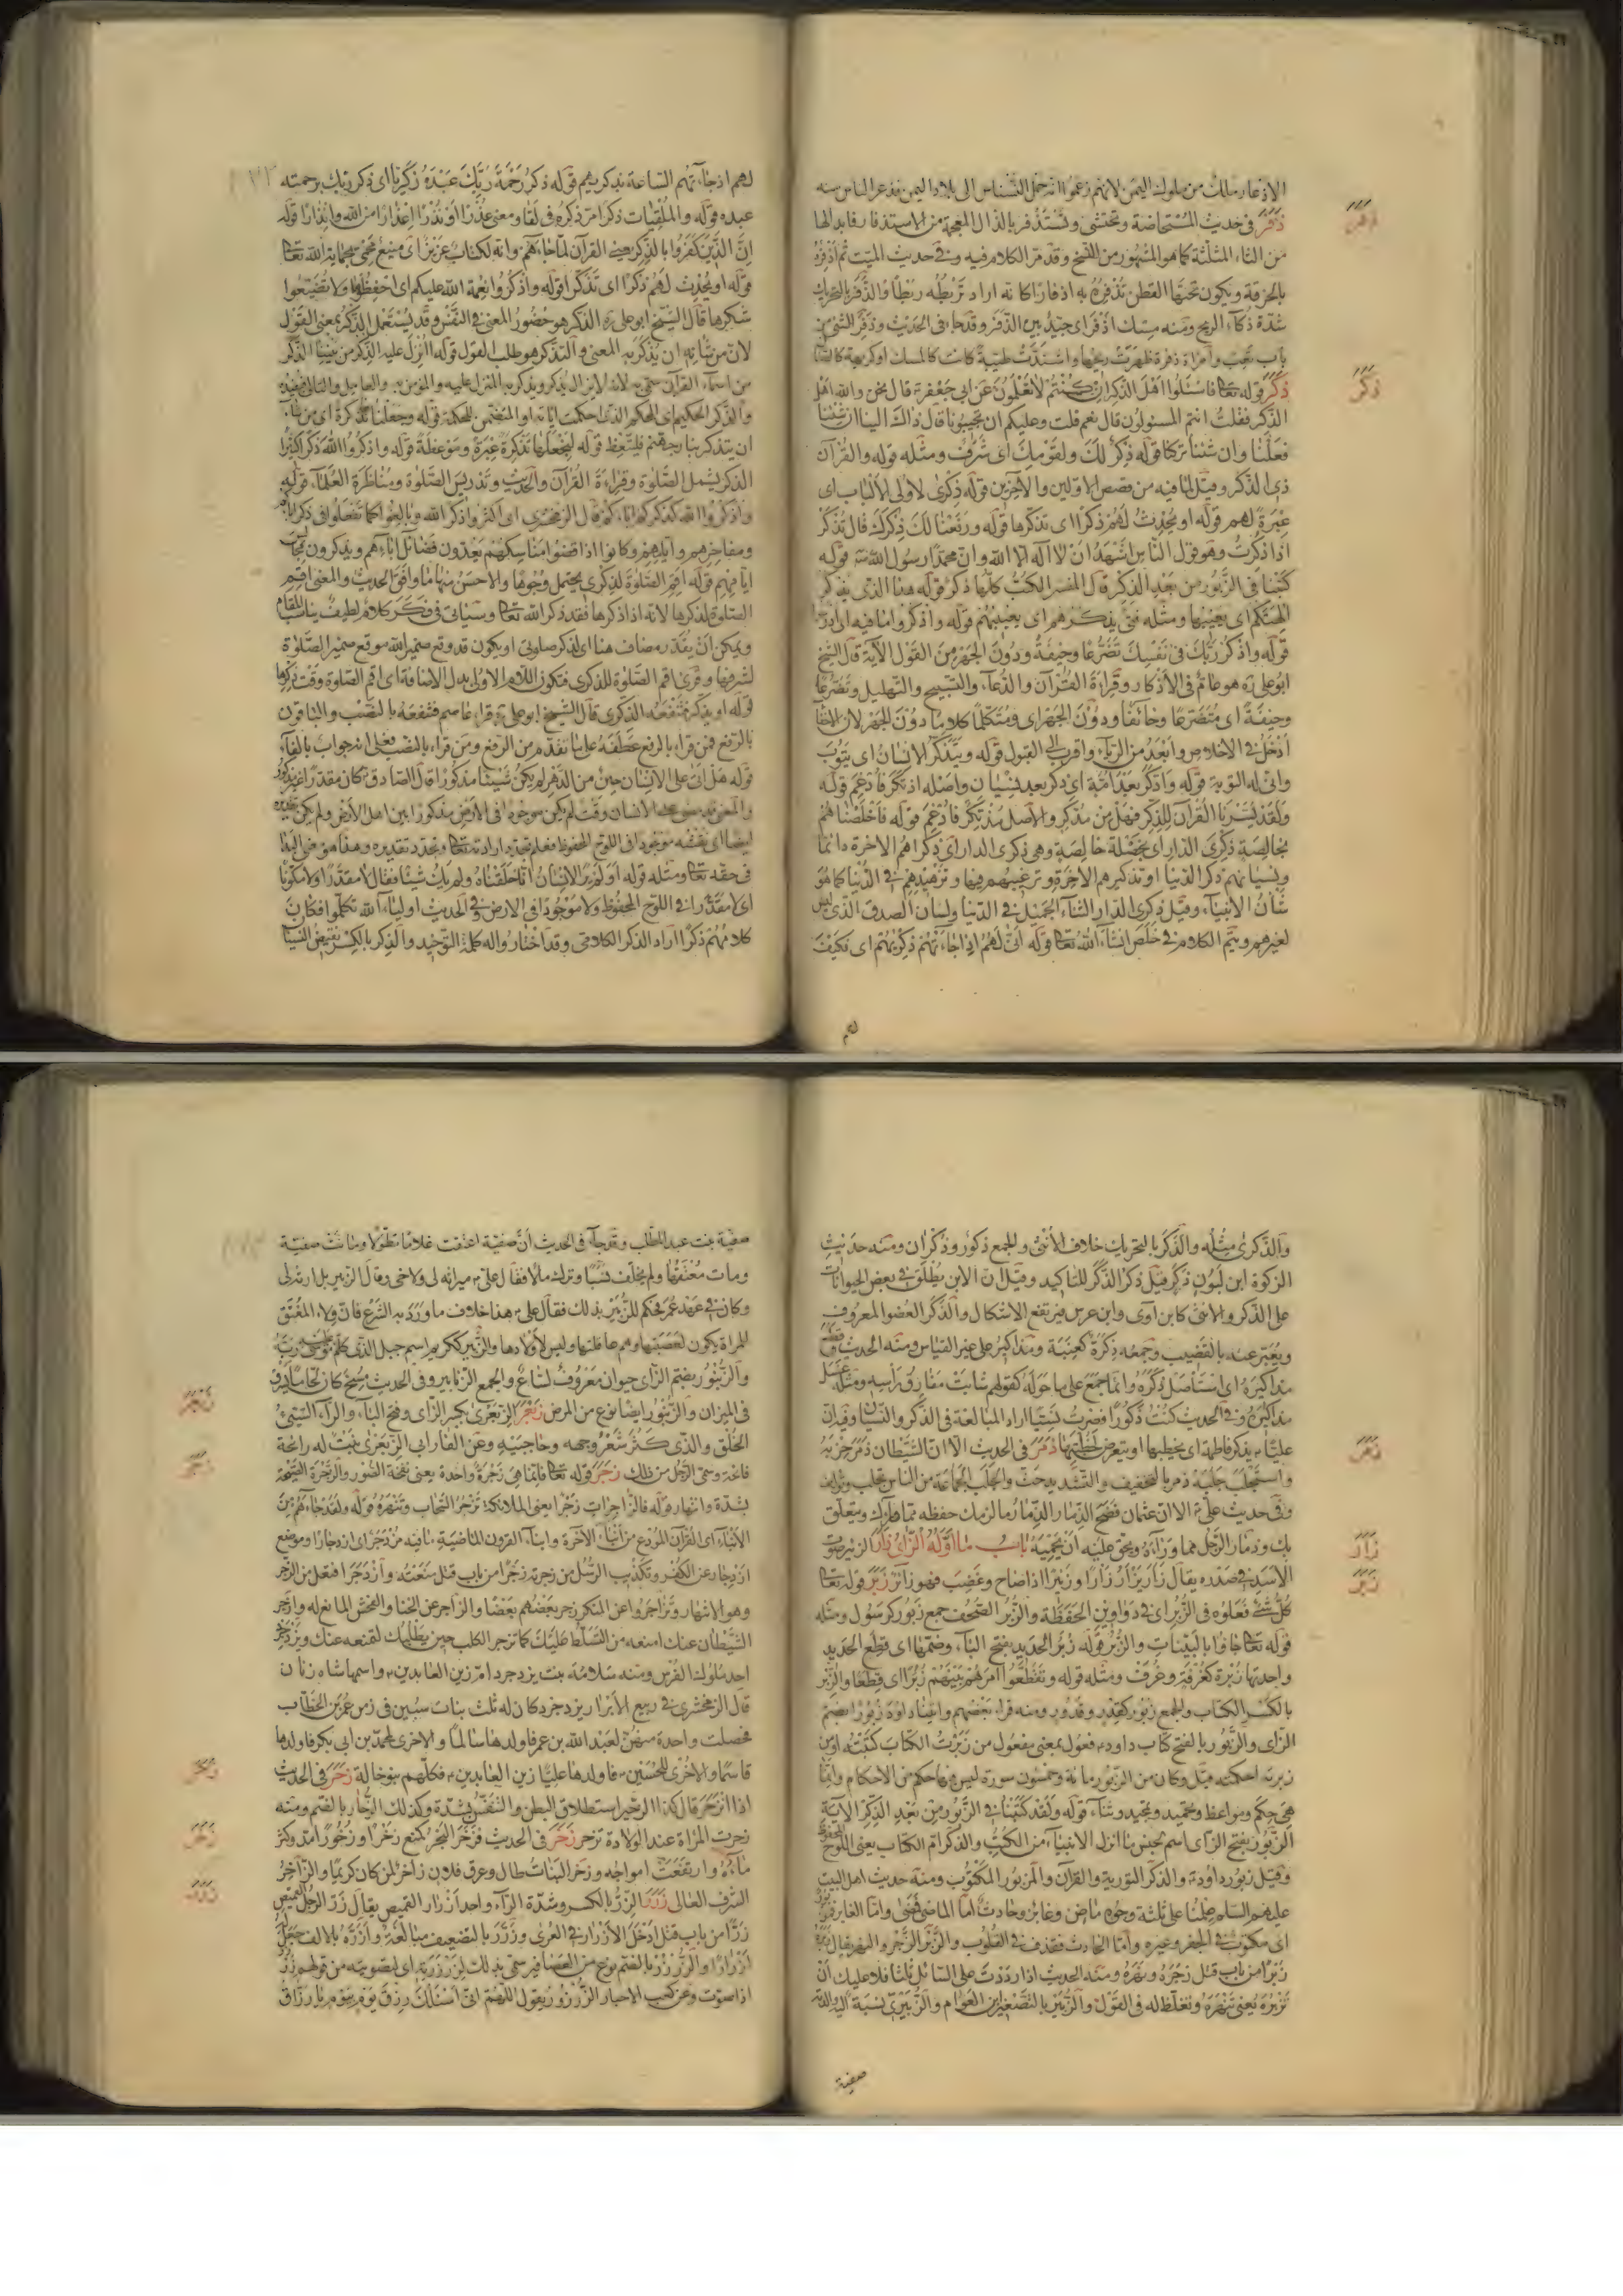 الاذعار ملك من ملوك اليمن لانهم زعموا انه حمل النسناس الى بلاد اليمن فذعر الناس منه
ذفر فى حديث المستحاضة وتحتشى وتستذفر بالذال المعجمة من الاستذفار قلبدالها
من الثاء المثلثة كما هو المشهور من النسخ وقد مر الكلام فيه وفى حديث الميت ثم اذفره
بالخرقة ويكون تحتها القطن تذفره به اذفارا كانه اراد تربطه ربطا والذفر بالتحريك
شدة ذكاء الريح ومنه مسك اذفر اى جيد بين الذفر وقد جاء فى الحديث وذفر الشئ من
باب تعب وامراة ذفرة ظهرت ريحها واشتدت طيبة كانت كالمسك او كريهة كالصنان
ذكر قوله تعالى فاسئلوا اهل الذكر ان كنتم لا تعلمون عن ابى جعفر قال نحن والله اهل
الذكر فقلت انتم المسئولون قال نعم قلت وعليكم ان تجيبونا قال ذاك الينا ان شئنا
فعلنا وان شئنا تركنا قوله ذكر لك ولقومك اى شرف ومثله قوله والقرآن
ذى الذكر وقيل لما فيه من قصص الاولين والاخرين قوله ذكرى لاولى الالباب اى
عبرة لهم قوله او يحدث لهم ذكرا اى تذكرها قوله ورفعنا لك ذكرك قال تذكر
اذا ذكرت وهو قول الناس اشهد ان لا اله الا الله وان محمدا رسول الله قوله
كتبنا فى الزبور من بعد الذكر قال المفسر الكتب كلها ذكر قوله هذا الذى يذكر
الهتكم اى يعيبها ومثله فتى يذكرهم اى يعيبهم قوله واذكروا ما فيه اى ادرسوا
قوله واذكر ربك فى نفسك تضرعا وخيفة ودون الجهر من القول الآية قال الشيخ
ابو على ره هو عام فى الاذكار وقراءة القرآن والدعاء والتسبيح والتهليل وتضرعا
وخيفة اى متضرعا وخائفا ودون الجهر اى ومتكلما كلاما دون الجهر لان الاخفا
ادخل فى الاخلاص وابعد من الرياء واقرب الى القبول قوله ويتذكر الانسان اى يتوب
وانى له التوبة قوله واذكر بعد امة اى ذكر بعد نسيان واصله اذتكر فادغم قوله
ولقد يسرنا القرآن للذكر فهل من مدكر والاصل مذتكر فادغم قوله اخلصناهم
بخالصة ذكرى الدار اى بخصلة خالصة وهى ذكرى الدار اى ذكراهم الاخرة دائما
ونسيانهم ذكر الدنيا او تذكيرهم الاخرة وترغيبهم فيها وتزهيدهم فى الدنيا كما هو
شأن الانبياء وقيل ذكرى الدار الثناء الجميل فى الدنيا ولسان الصدق الذى ليس
لغيرهم ويتم الكلام فى خلص انشاء الله تعالى قوله انى لهم اذا جاءتهم ذكريهم اى فكيف
لهم
ذفر
ذكر
لهم اذ جاءتهم الساعة بذكريهم قوله ذكر رحمة ربك عبده زكريا اى ذكر ربك برحمته
عبده قوله والملقيات ذكرا مر ذكره فى لقا ومعنى عذرا او نذرا اعذارا من الله وانذارا قوله
ان الذين كفروا بالذكر يعنى القرآن لما جاءهم وانه لكتاب عزيز اى منيع محمى بحماية الله تعالى
قوله او يحدث لهم ذكرا اى تذكرا قوله واذكروا نعمة الله عليكم اى احفظوها ولا تضيعوا
شكرها قال الشيخ ابو على ره الذكر هو حضور المعنى فى النفس وقد يستعمل الذكر بمعنى القول
لان من شانه ان يذكر به المعنى والتذكر هو طلب القول قوله اانزل عليه الذكر من بيننا الذكر
من اسماء القرآن سمى به
والذكر الحكيم اى المحكم الذى احكمت اياته او المتضمن للحكمة قوله وجعلناها تذكرة اى من شاء
ان يتذكر بنار جهنم فليتعظ قوله لنجعلها تذكرة عبرة وموعظة قوله واذكروا الله ذكرا كثيرا
الذكر يشمل الصلوة وقراءة القرآن والحديث وتدريس الصلوة ومناظرة العلماء قوله
واذكروا الله كذكركم اباءكم قال الزمخشرى اى اكثروا ذكر الله وبالغوا كما تفعلون فى ذكر اباءكم
ومفاخرهم وايامهم وكانوا اذا قضوا مناسكهم يعدون فضائل اباءهم ويذكرون محاسن
ايامهم قوله اقم الصلوة لذكرى يحتمل وجوها والاحسن منها ما وافق الحديث والمعنى اقم
الصلوة لذكرها لانه اذا ذكرها فقد ذكر الله تعالى وسياتى فى فكر كلام لطيف يناسب المقام
ويمكن ان يقدر مضاف هنا اى لذكر صلوتى او يكون قد وقع ضمير الله موقع ضمير الصلوة
لشرفها وقرئ اقم الصلوة للذكرى فتكون اللام الاولى بدل الاضافة اى اقم الصلوة وقت ذكرها
قوله او يذكر فتنفعه الذكرى قال الشيخ ابو على ره قراء عاصم فتنفعه بالنصب والباقون
بالرفع فمن قراء بالرفع عطفه على ما تقدم من الرفع ومن قراء بالنصب فعلى انه جواب بالفاء
قوله هل اتى على الانسان حين من الدهر لم يكن شيئا مذكورا قال الصادق كان مقدرا غير مذكور
الانسان وقت لم يكن موجودا فى الارض مذكورا بين اهل الارض ولم يكن
فى حقه تعالى ومثله قوله اولم ير الانسان انا خلقناه ولم يك شيئا فقال لا مقدرا ولا مكونا
اى لا مقدرا فى اللوح المحفوظ ولا موجودا فى الارض وفى الحديث اولياء الله تكلموا فكان
كلامهم ذكرا اراد الذكر الكلامى وقد اختار واله كلمة التوحيد والذكر بالكسر نقيض النسيان
والذكرى مثله والذكر بالتحريك خلاف الانثى والجمع ذكور وذكران ومنه حديث
الزكوة ابن لبون ذكر قيل ذكر الذكر للتاكيد وقيل ان الابن يطلق فى بعض الحيوانات
على الذكر والانثى كابن اوى وابن عرس فيرتفع الاشكال والذكر العضو المعروف
ويعبر عنه بالقضيب وجمعه ذكرة كعنبة ومذاكير على غير القياس ومنه الحديث
مذاكيره اى استاصل ذكره وانما جمع على ما حوله كقولهم شابت مفارق راسه ومثله غسل
مذاكيره وفى الحديث كنت ذكورا فصرت نسيا اراد المبالغة فى الذكر والنسيان وفيه ان
عليا يذكر فاطمة اى يخطبها او يتعرض لخطبتها ذمر فى الحديث الا ان الشيطان ذمر حزبه
واستجلب جلبه ذمر بالتخفيف والتشديد حث والجلب الجماعة من الناس تجلب وتؤلف
وفى حديث على الا ان عثمان فضح الذمار الذمار ما لزمك حفظه مما ورائك ويتعلق
بك وذمار الرجل مما وراءه ويحق عليه ان يحميه باب ما اوله الزاى زار الزئير صوت
الاسد فى صدره يقال زار يزار زارا وزئيرا اذا صاح وغضب فهو زائر زبر قوله تعالى
كل شئ فعلوه فى الزبر اى فى دواوين الحفظة والزبر الصحف جمع زبور كرسول ومثله
قوله تعالى جاؤا بالبينات والزبر قوله زبر الحديد بفتح الباء وضمها اى قطع الحديد
واحدتها زبرة كغرفة وغرف ومثله قوله وتقطعوا امرهم بينهم زبرا اى قطعا والزبر
بالكسر الكتاب والجمع زبور كقدر وقدور ومنه قراء بعضهم واتينا داود زبورا بضم
الزاى والزبور بالفتح كتاب داود فعول بمعنى مفعول من زبرت الكتاب كتبته او من
زبرته احكمته قيل وكان من الزبور مائة وخمسون سورة ليس فيها حكم من الاحكام وانما
هى حكم ومواعظ وتحميد وتمجيد وثناء قوله ولقد كتبنا فى الزبور من بعد الذكر الآية
الزبور بفتح الزاى اسم لجنس ما انزل الانبياء من الكتب والذكر ام الكتاب يعنى اللوح المحفوظ
وقيل زبور داود والذكر التورية والقرآن والمزبور المكتوب ومنه حديث اهل البيت
عليهم السلام علمنا على ثلثة وجوه ماض وغابر وحادث اما الماضى فمفسر واما الغابر فمزبور
اى مكتوب فى الجفر وغيره واما الحادث فقذف فى القلوب والزبر الزجر والنهر يقال زبره
زبرا من باب قتل زجره ونهره ومنه الحديث اذا رددت على السائل ثلثا فلا عليك ان
تزبره يعنى تنهره وتغلظ له فى القول والزبير بالتصغير ابن العوام والزبيرى نسبة اليه والدته
صفية
ذمر
زار
زبر
صفية بنت عبدالمطلب وقد جاء فى الحديث ان صفية اعتقت غلاما
ومات معتقها ولم يخلف نسبا وترك مالا فقال على ميراثه لى ولاخى وقال الزبير بل ارثه لى
وكان فى عهد عمر فحكم للزبير بذلك فقال على هذا خلاف ما ورد به الشرع فان ولاء المعتق
للمراة يكون لعصبتها وهم عاقلتها وليس لاولادها والزبير ككريم اسم جبل الذى كلم موسى ربه
والزنبور بضم الزاى حيوان معروف لساع والجمع الزنابير وفى الحديث مسخ كان لحاما يسرق
فى الميزان والزنبور ايضا نوع من المرض زبعر الزبعرى بكسر الزاى وفتح الباء والراء السيئ
الخلق والذى كثر شعر وجهه وحاجبيه وعن الفارابى الزبعرى نبت له رائحة
فائحة وسمى الرجل من ذلك زجر قوله تعالى فانما هى زجرة واحدة يعنى نفخة الصور والزجرة الصيحة
بشدة وانتهار قوله فالزاجرات زجرا يعنى الملائكة تزجر السحاب وتنهره قوله ولقد جاءهم من
الانباء اى القرآن المودع من انباء الاخرة وانباء القرون الماضية ما فيه مزدجر اى ازدجارا وموضع
ازدجار عن الكفر وتكذيب الرسل من زجرته زجرا من باب قتل منعته وازدجر افتعل من الزجر
وهو الانتهار وتزاجروا عن المنكر زجر بعضهم بعضا والزاجر عن الخنا والفحش المانع له وازجر
الشيطان عنك امنعه من التسلط عليك كما تزجر الكلب حين يطلبك لتمنعه عنك ويزدجر
احد ملوك الفرس ومنه سلامة بنت يزدجرد ام زين العابدين واسمها شاه زنان
قال الزمخشرى فى ربيع الابرار يزدجرد كان له ثلث بنات سبين فى زمن عمر بن الخطاب
فحصلت واحدة منهن لعبد الله بن عمر فاولدها سالما والاخرى لمحمد بن ابى بكر فاولدها
قاسما والاخرى للحسين فاولدها عليا زين العابدين فكلهم بنو خالة زحر فى الحديث
اذا انزحر قال كذا الزحير استطلاق البطن والتنفس بشدة وكذلك الزحار بالضم ومنه
زحرت المراة عند الولادة تزحر زخر فى الحديث فزخر البحر كمنع زخرا وزخورا مد وكثر
ماءه وارتفعت امواجه وزخر النبات طال وعرق فلان زاخر لمن كان كريما والزاخر
الشرف العالى زرر الزر بالكسر وشدة الراء واحد ازرار القميص يقال زر الرجل القميص
زرا من باب قتل ادخل الازرار فى العرى وزرر بالتضعيف مبالغة وازره بالالف جعل له
ازرارا والزرزر بالضم نوع من العصافير سمى بذلك لزرزرته اى لصوته من قولهم زرزر
اذا صوت وعن كعب الاحبار الزرزور يقول اللهم انى اسئلك رزق يوم بيوم يا رزاق
زبعر
زجر
زحر
زخر
زرر